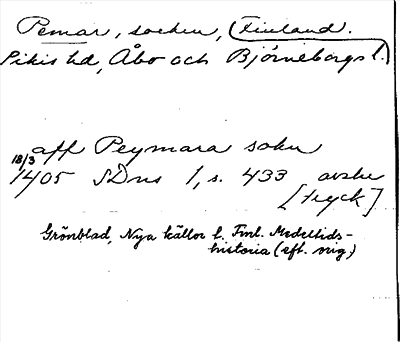 Pemar, socken, (Finland.
Pikis hd, Åbo och Björneborgs l.)
aff Peymara sokn
18/3
1405 SDns 1, s. 433 avskr
[tryck]
Grönblad, Nya källor t. Finl. Medeltids-
historia (eft. orig)